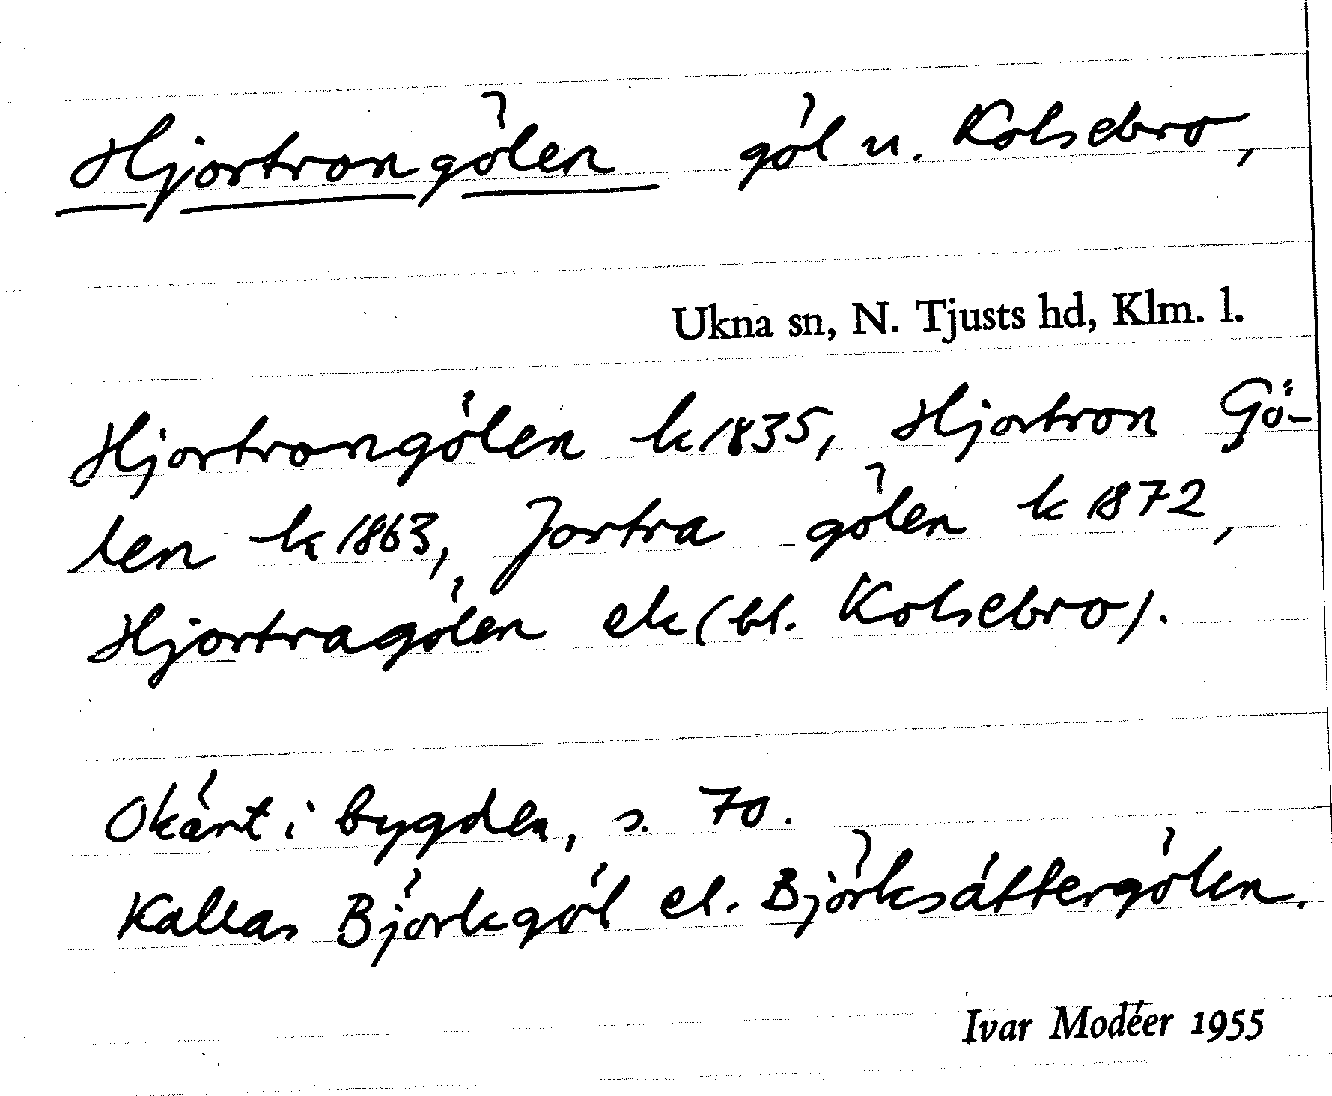 Hjortrongölen göl n. Kolsebro,
Ukna sn, N. Tjusts hd, Klm. l.
Hjortrongölen k 1835, Hjortron Gö-
len k 1863, Jortra gölen k 1872,
Hjortragölen ek (bl. Kolsebro).
Okänt i bygden, s. 70.
Kallas Björkgöl el. Björksättergölen.
Ivar Modéer 1955